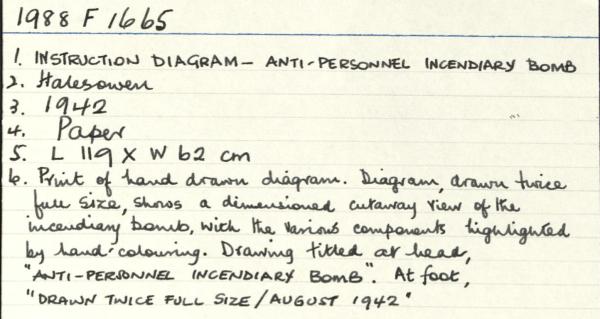 1988 F 1665
1. INSTRUCTION DIAGRAM - ANTI-PERSONNEL INCENDIARY BOMB
2. Halesowen
3. 1942
4. Paper
5. L 119 X W 62 cm
6. Print of hand drawn diagram. Diagram, drawn twice
full size, shows a dimensioned cutaway view of the
incendiary bomb, with the various components highlighted
by hand-colouring. Drawing titled at head,
"ANTI-PERSONNEL INCENDIARY BOMB". At foot,
"DRAWN TWICE FULL SIZE / AUGUST 1942"